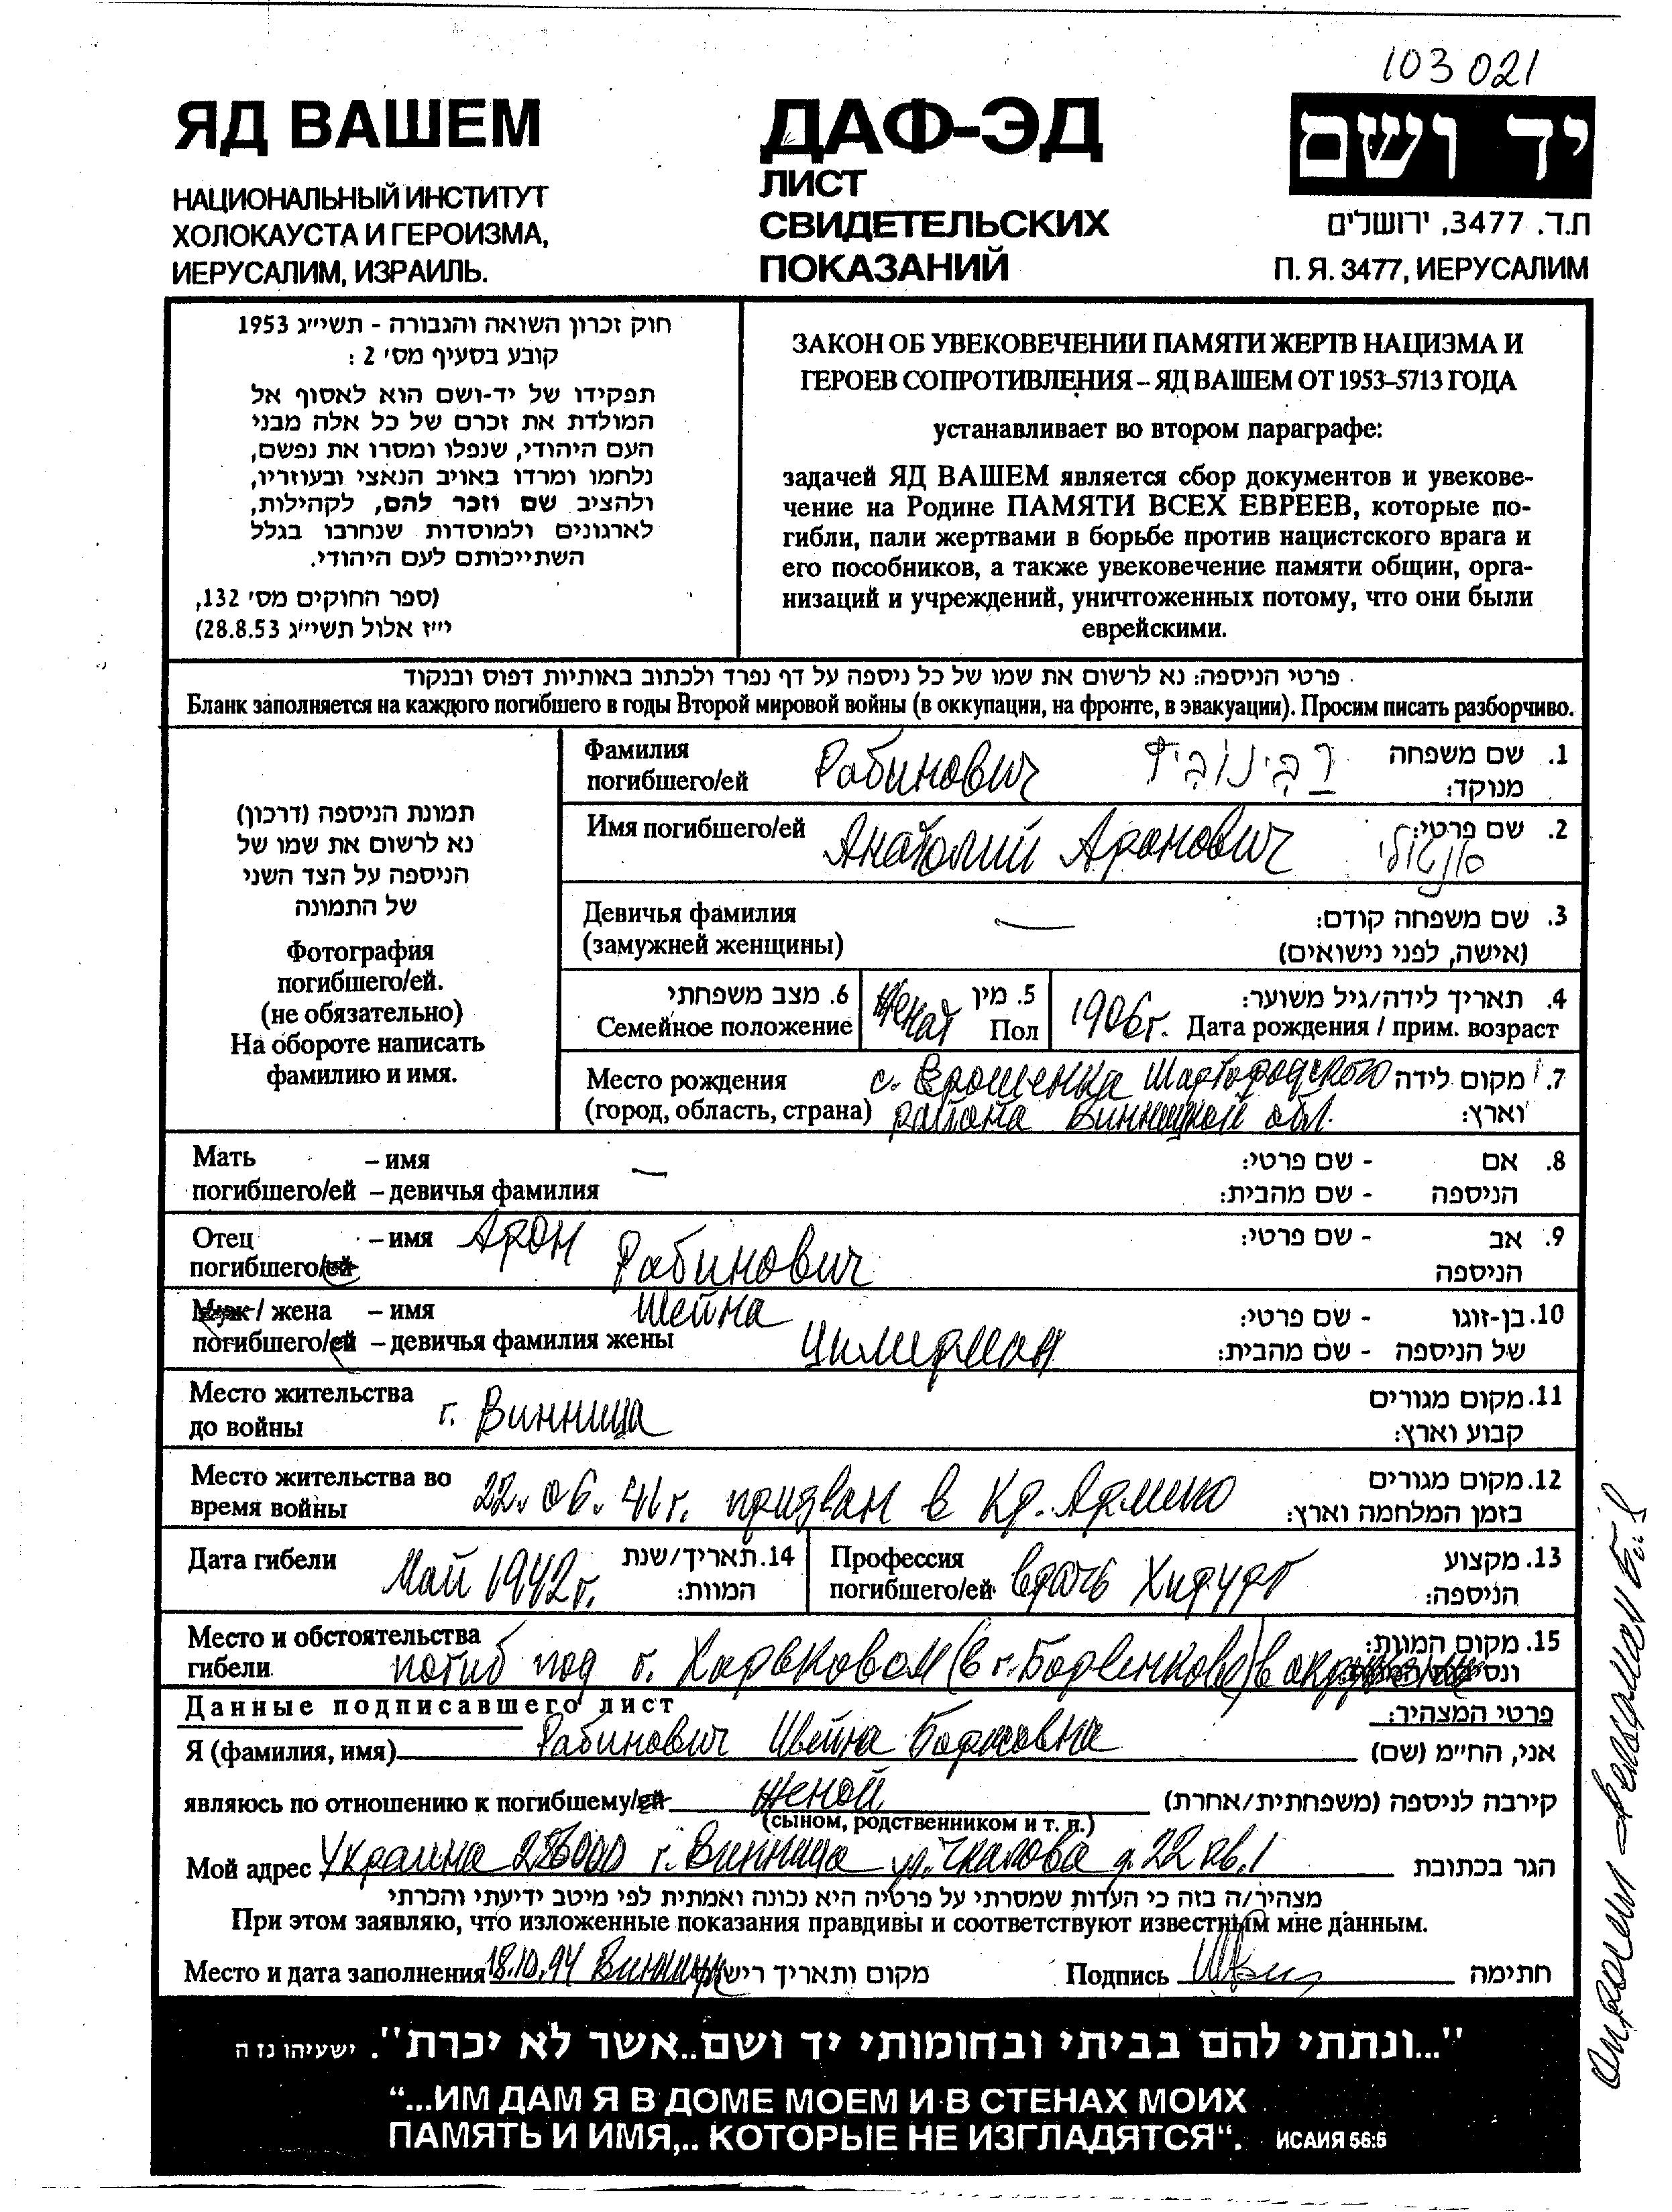 103021
ЯД ВАШЕМ
НАЦИОНАЛЬНЫЙ ИНСТИТУТ
ХОЛОКАУСТА И ГЕРОИЗМА,
ИЕРУСАЛИМ, ИЗРАИЛЬ.
ДАФ-ЭД
ЛИСТ
СВИДЕТЕЛЬСКИХ
ПОКАЗАНИЙ
יד ושם
ת.ד. 3477, ירושלים
П. Я. 3477, ИЕРУСАЛИМ
חוק זכרון השואה והגבורה - תשי״ג 1953
קובע בסעיף מס׳ 2 :
תפקידו של יד-ושם הוא לאסוף אל
המולדת את זכרם של כל אלה מבני
העם היהודי, שנפלו ומסרו את נפשם,
נלחמו ומרדו באויב הנאצי ובעוזריו,
ולהציב שם וזכר להם, לקהילות,
לארגונים ולמוסדות שנחרבו בגלל
השתייכותם לעם היהודי.
(ספר החוקים מס׳ 132,
י״ז אלול תשי״ג 28.8.53)
ЗАКОН ОБ УВЕКОВЕЧЕНИИ ПАМЯТИ ЖЕРТВ НАЦИЗМА И
ГЕРОЕВ СОПРОТИВЛЕНИЯ – ЯД ВАШЕМ ОТ 1953–5713 ГОДА
устанавливает во втором параграфе:
задачей ЯД ВАШЕМ является сбор документов и увекове-
чение на Родине ПАМЯТИ ВСЕХ ЕВРЕЕВ, которые по-
гибли, пали жертвами в борьбе против нацистского врага и
его пособников, а также увековечение памяти общин, орга-
низаций и учреждений, уничтоженных потому, что они были
еврейскими.
פרטי הניספה: נא לרשום את שמו של כל ניספה על דף נפרד ולכתוב באותיות דפוס ובנקוד
Бланк заполняется на каждого погибшего в годы Второй мировой войны (в оккупации, на фронте, в эвакуации). Просим писать разборчиво.
תמונת הניספה (דרכון)
נא לרשום את שמו של
הניספה על הצד השני
של התמונה
Фотография
погибшего/ей.
(не обязательно)
На обороте написать
фамилию и имя.
Фамилия Рабинович רבינוביץ 1. שם משפחה
погибшего/ей מנוקד:
Имя погибшего/ей Анатолий Аронович 2. שם פרטי:
Девичья фамилия — 3. שם משפחה קודם:
(замужней женщины) (אישה, לפני נישואים)
6. מצב משפחתי
Семейное положение женат
5. מין
Пол
4. תאריך לידה/גיל משוער:
1906г. Дата рождения / прим. возраст
Место рождения с. Ерошенка Шаргородского 7. מקום לידה
(город, область, страна) района Винницкой обл. וארץ:
Мать – имя — 8. אם - שם פרטי:
погибшего/ей – девичья фамилия הניספה - שם מהבית:
Отец – имя Арон 9. אב - שם פרטי:
погибшего/ей Рабинович הניספה
Муж / жена – имя Шейна 10. בן-זוגו - שם פרטי:
погибшего/ей – девичья фамилия жены Цимерман של הניספה - שם מהבית:
Место жительства 11. מקום מגורים
до войны г. Винница קבוע וארץ:
Место жительства во 12. מקום מגורים
время войны 22.06.41г. призван в Кр. Армию בזמן המלחמה וארץ:
Дата гибели Май 1942г. 14. תאריך/שנת
המוות:
Профессия врач Хирург 13. מקצוע
погибшего/ей הניספה:
Место и обстоятельства 15. מקום המוות:
гибели погиб под г. Харьковом (в г. Барвенково) в
Данные подписавшего лист פרטי המצהיר:
Я (фамилия, имя) Рабинович Шейна Борисовна אני, החי״מ (שם)
являюсь по отношению к погибшему/ей женой קירבה לניספה (משפחתית/אחרת)
(сыном, родственником и т. п.)
Мой адрес Украина г. Винница ул. Чкалова д. 22 кв. 1 הגר בכתובת
מצהיר/ה בזה כי העדות שמסרתי על פרטיה היא נכונה ואמתית לפי מיטב ידיעתי והכרתי.
При этом заявляю, что изложенные показания правдивы и соответствуют известным мне данным.
Место и дата заполнения 18.10.94 Винница מקום ותאריך רישום Подпись חתימה
"...ונתתי להם בביתי ובחומותי יד ושם..אשר לא יכרת". ישעיהו נז ה
“...ИМ ДАМ Я В ДОМЕ МОЕМ И В СТЕНАХ МОИХ
ПАМЯТЬ И ИМЯ,.. КОТОРЫЕ НЕ ИЗГЛАДЯТСЯ“. ИСАИЯ 56:5